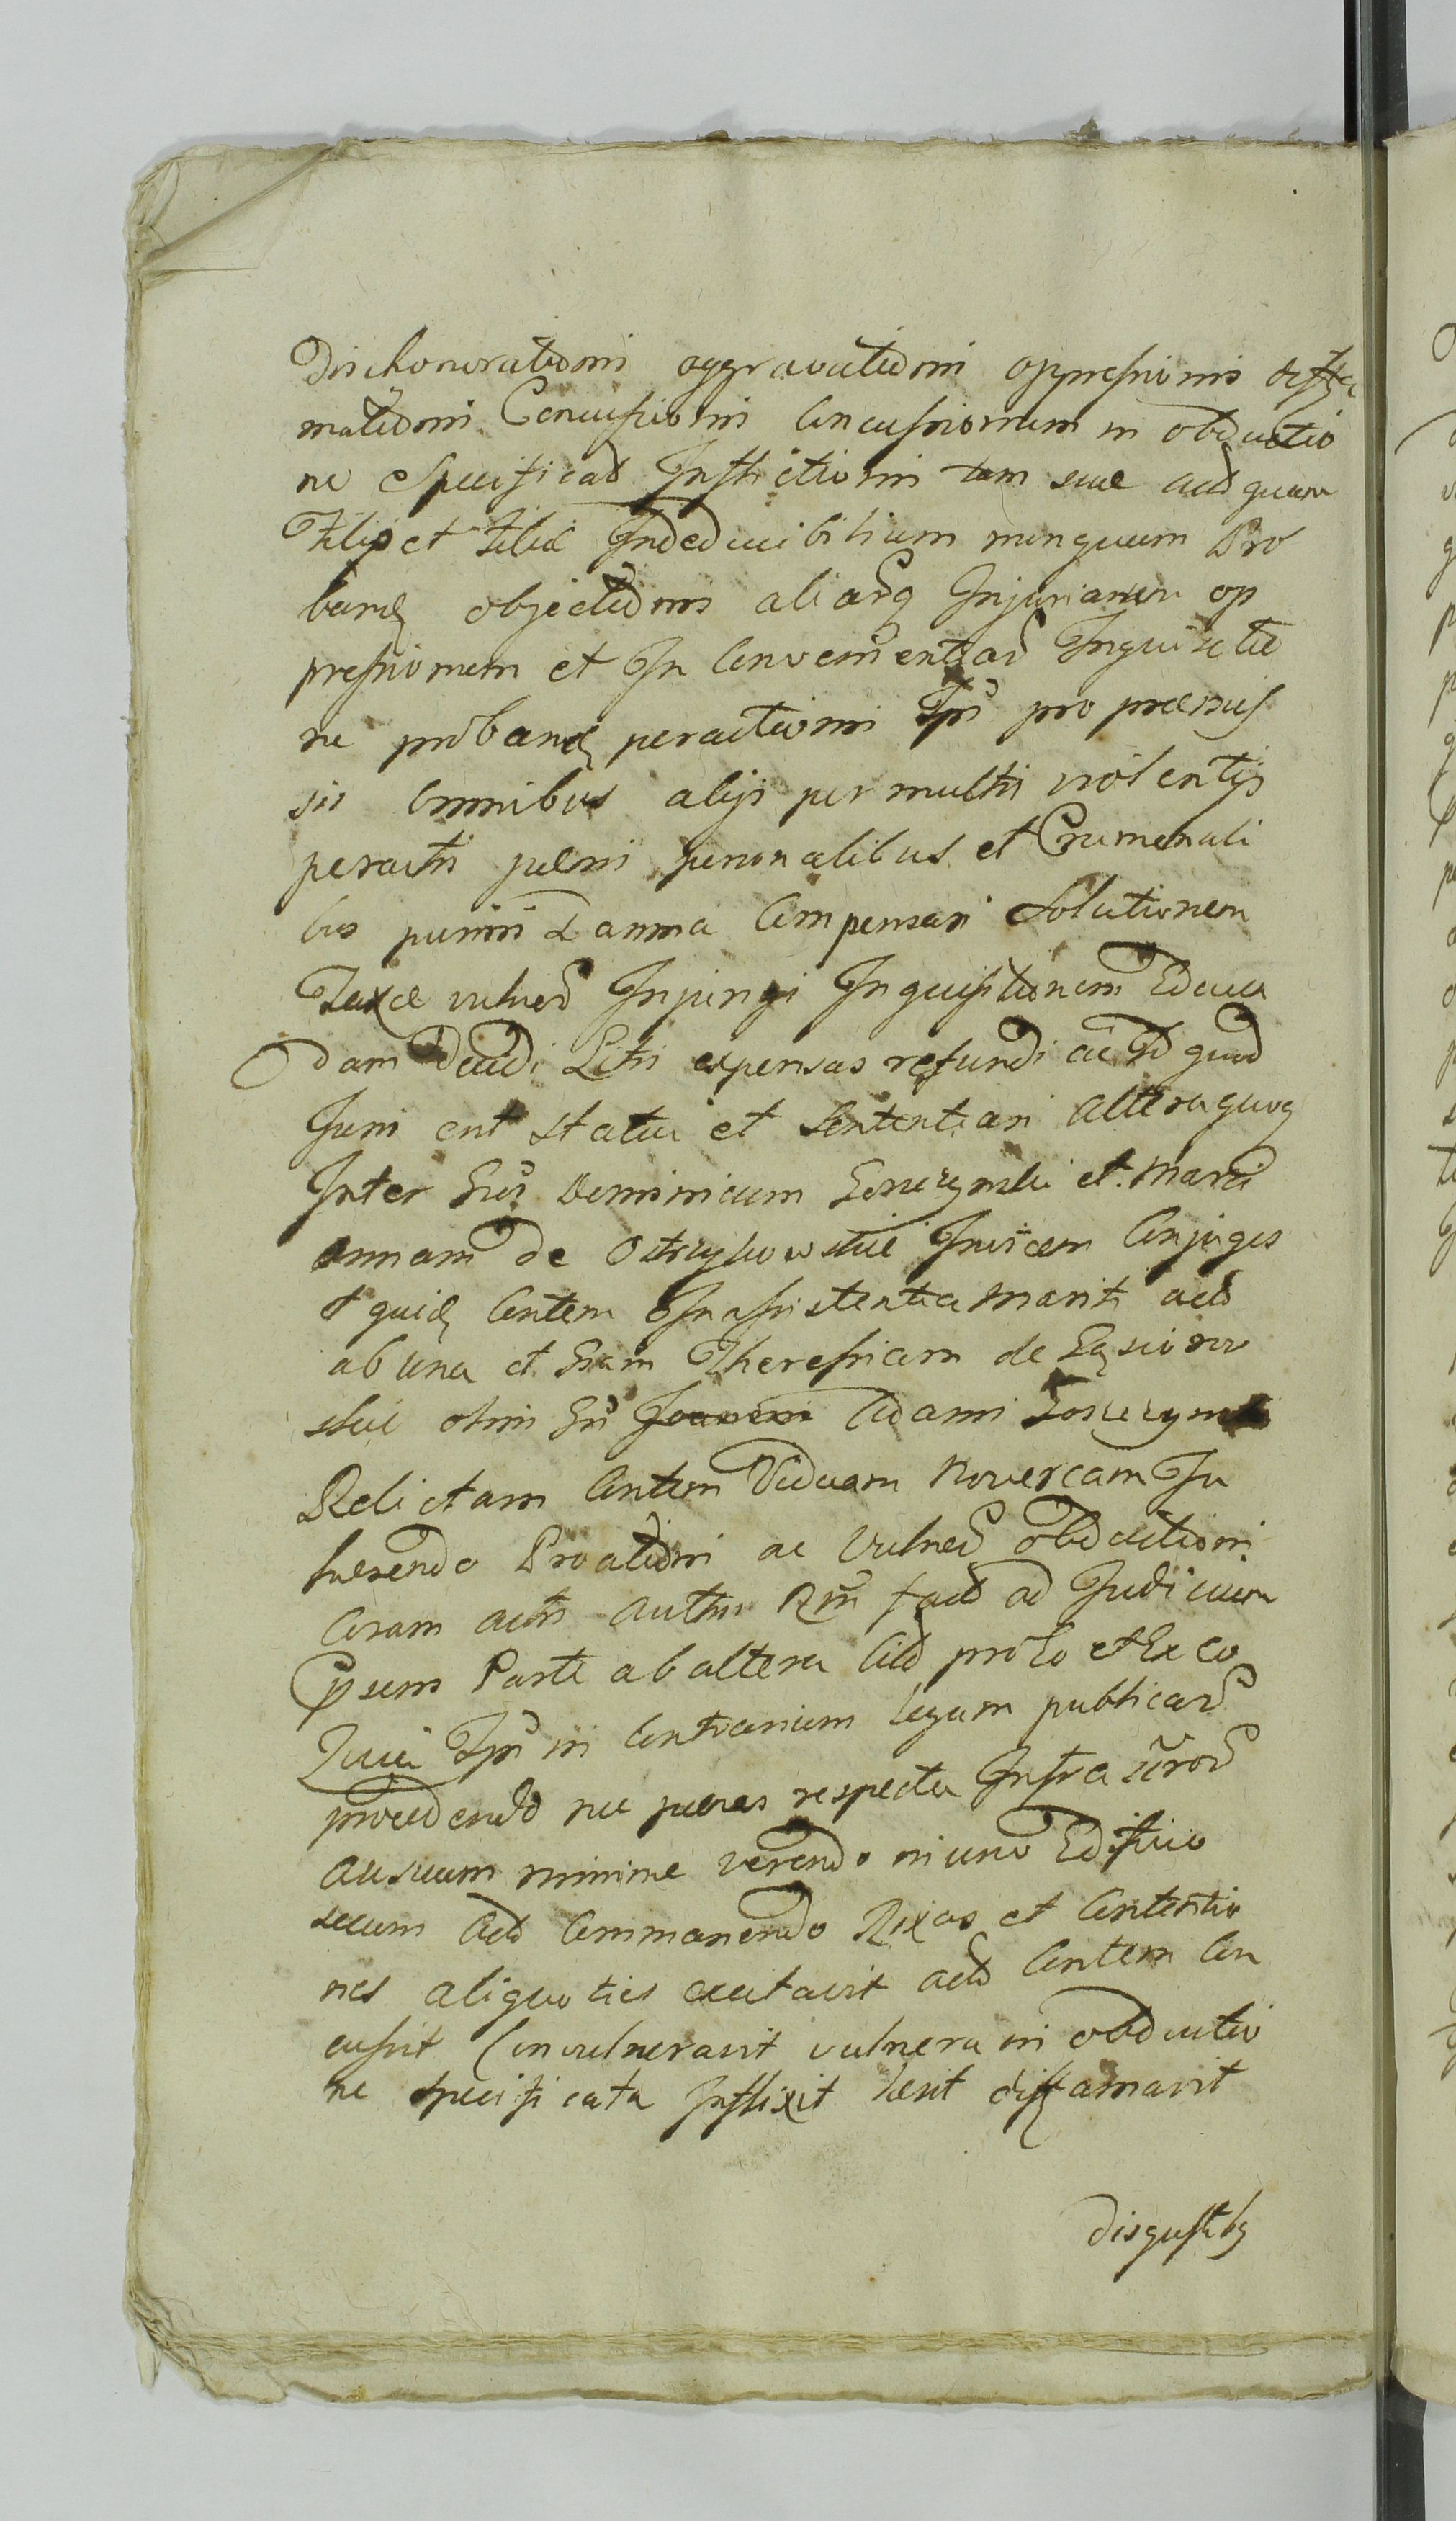 Dischonorationis aggravationis oppressionis diffa
mationis Concussionis Concussionum in obductio
ne Specificat Inflictionis tam suae actt quam
Filio et Filiae Indeducibilium nunquam Pro
band objectionis aliarq Injuriarum op
pressionem et In Convenientiar Inquisitio
ne proband peractionis Ipsi pro praemis
sis omnibus alijs per multis violentijs
peractis paenis personalibus et Crumenali
bus puniri Damna Compensari Solutionem
Taxae vulner Injungi Inquisitionem Educen
dam Decidi Litis expensas refundi ac Id quod
Juris erit statui et Sententiari altera quoq
Inter Dominicum et Mari
annam de Invicem Conjuges
et quid Contem In assistentia mariti actt
ab una et Theressiam de
olim Adami
Relictam Contem Viduam Novercam In
haerendo Proationi ac Vulner obductioni
Coram actis Authen fact ad Judicium
Ipsum Parte ab altera Citt pro Eo et Ex Eo
Quia Ipsi in Contrarium legum publicar
procedendo nec paenas respectu Infra
ausuum minime verendo in uno Edificio
secum actt Commanendo Rixas et Contentio
nes aliquoties excitavit actt Contem Con
cussit Convulneravit vulnera in obductio
ne specificata Inflixit laesit diffamavit